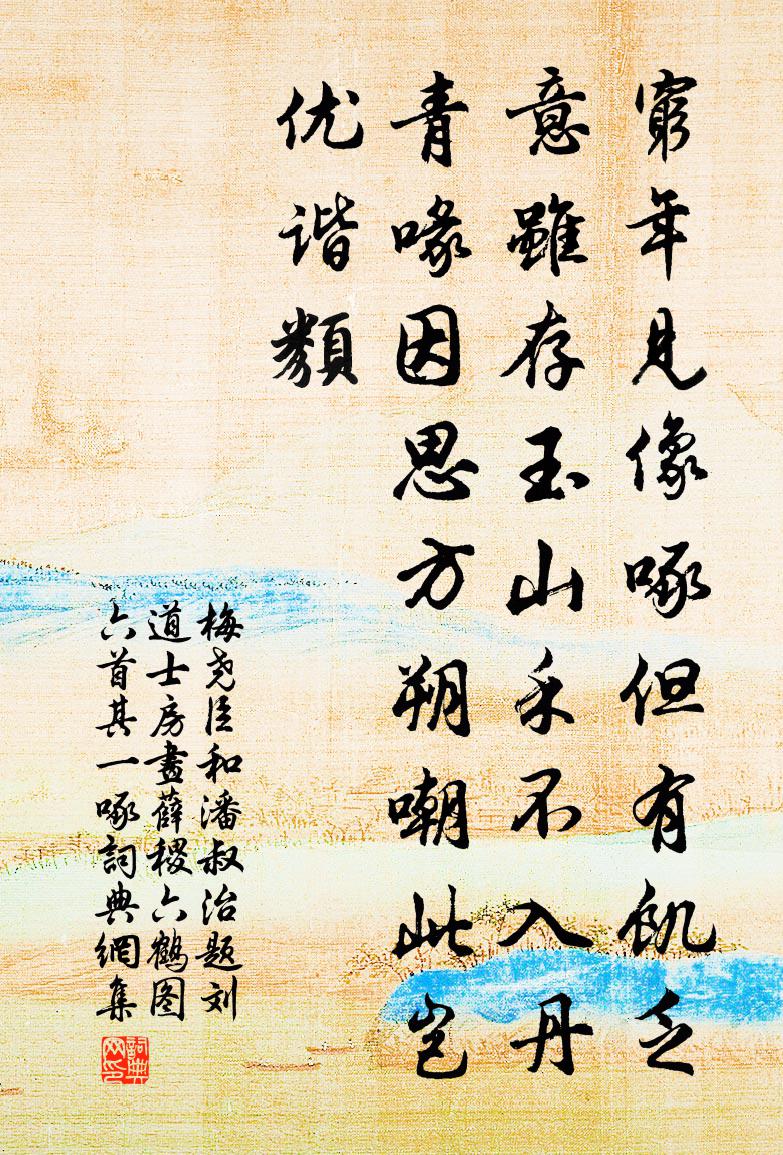 窮年見像啄但有飢乏
意雖存玉山禾不入丹
青喙因思方朔嘲此岂
优谐類
梅尧臣和潘叔治题刘
道士房畫薛稷六鶴图
六首其一啄詞典網集